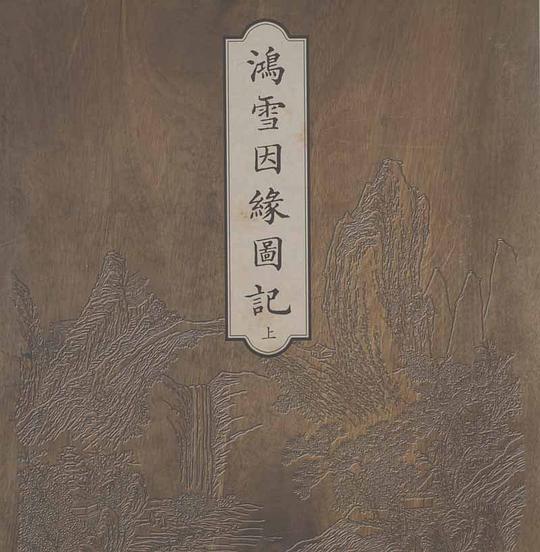 鴻雪因緣圖記
上